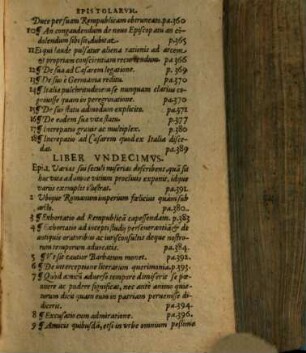 EPISTOLARVM.
Duce per suam Rempublicam oberuncato. pa.360
10 ¶ An congaudendum de nouo Episcopatu an co
dolendum sibi sit, dubitat. p.365
11 Ei qui laude pulsatur aliena rationis ad arcem
et propriam conscientiam recurrendum. p.366
12 ¶ De sua ad Cæsarem legatione. p.369
13 ¶ De sui è Germania reditu. pa.370
14 ¶ Italia pulchritudinem se nunquam clarius co
gnouisse quam in peregrinatione. pa.370
15 ¶ De sui statu admodum explicite. pa.372
16 ¶ De eadem sua vita statu. p.377
17 ¶ Increpatio grauis ac multiplex. p.380
18 ¶ Increpatio ad Cæsarem quod ex Italia disce
dat. pa.389
LIBER VNDECIMVS.
Epia. Varias sui seculi miserias describens, quâ sit
hæc vita ad vnicæ vanum proclinis exponit, idque
variis exemplis illustrat. pa.391.
2 Vbique Romanum imperium fœlicius quàm sub
arbi. pa.380.
3 ¶ Exhortatio ad Rempublicâ capessendam. p.383
4 ¶ Exhortatio ad incepti studij perseuerantiâ et de
antiquis oratoribus ac iurisconsultis deque nostro
rum temporum aduocatis. pa.384.
5 ¶ Vt sit cautior Barbatum monet. pa.392.
6 ¶ De interceptione literarum querimonia. p.393.
¶ Quòd amicū aduerso tempore dimiserit se pa
uorem ac pudore significat, nec ante animo quie
turum dicit quàm eum in patriam peruenisse di
dicerit. pa.394.
8 ¶ Excusatio cum admiratione. pa.396.
9 ¶ Amicis quibusdā, etsi in vrbe omnium pessima